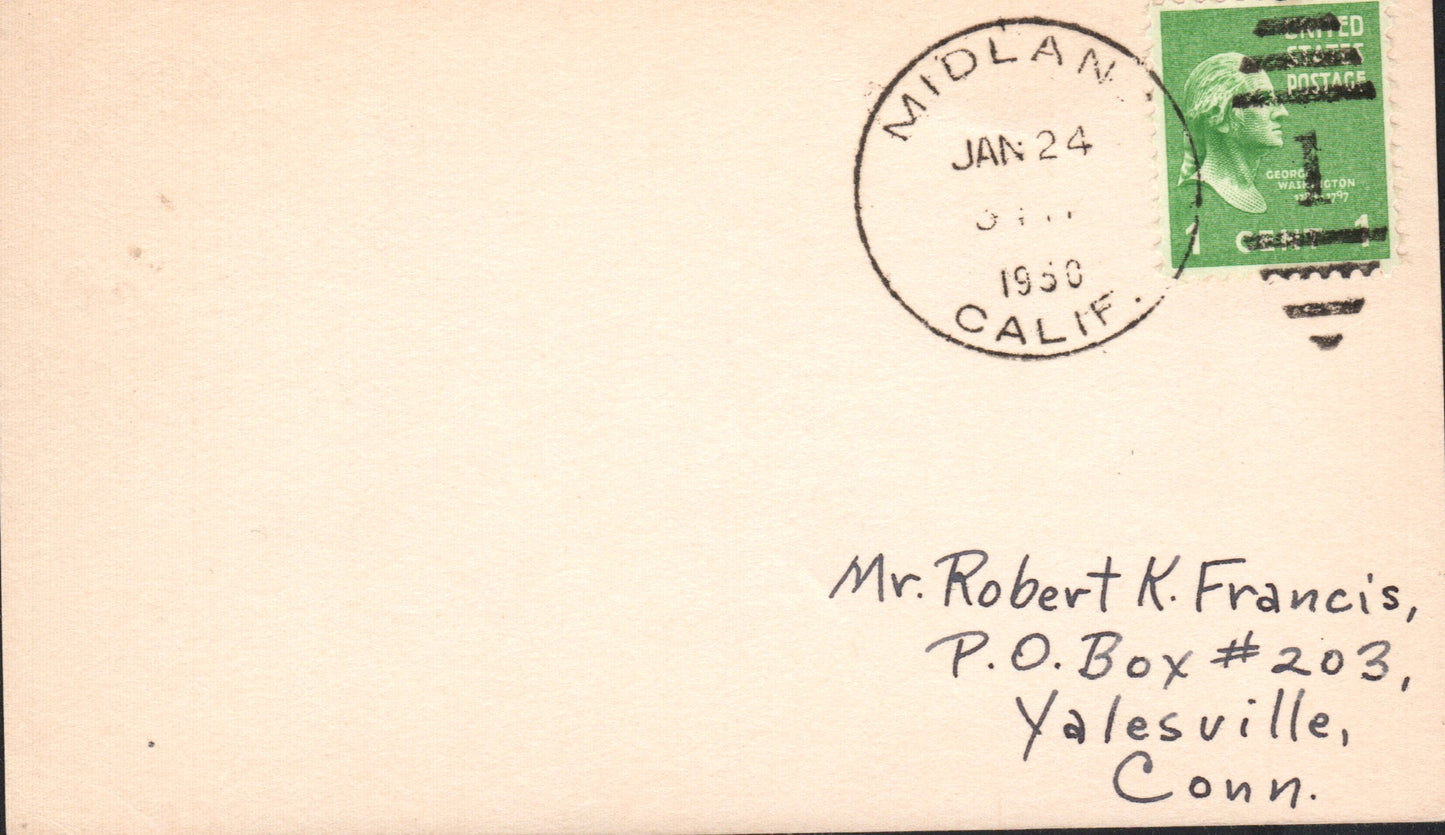 MIDLAN
JAN 24
1950
CALIF.
UNITED
STATES
POSTAGE
1
GEORGE
WASHINGTON
1797
1 CENT 1
Mr. Robert K. Francis,
P.O. Box #203,
Yalesville,
Conn.